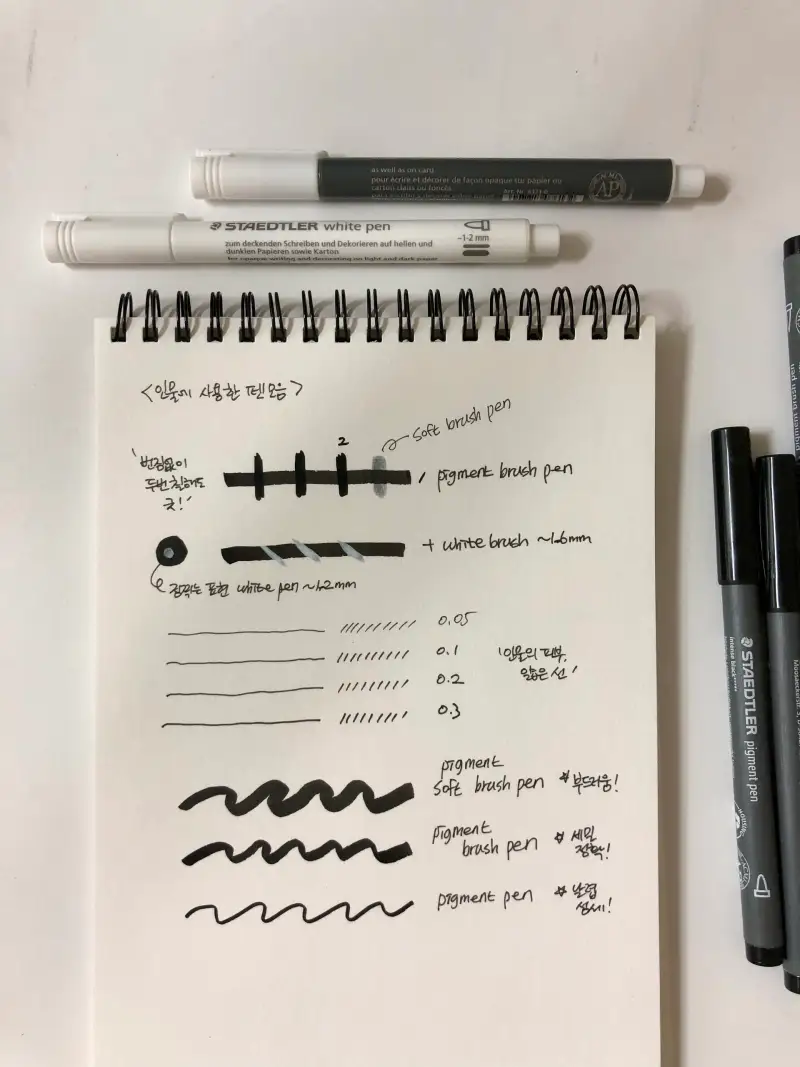 as well as on card
pour écrire et décorer de façon opaque sur papier ou
carton clairs ou foncés
Art. Nr.
AP
STAEDTLER white pen
~1-2 mm
zum deckenden Schreiben und Dekorieren auf hellen und
dunklen Papieren sowie Karton
for opaque writing and decorating on light and dark paper
<인물에 사용한 펜 모음>
2
soft brush pen
'번짐없이
두번 칠해도
굿!'
pigment brush pen
+ white brush ~1.6mm
white pen ~1.2mm
0.05
0.1
0.2
0.3
'인물의 피부,
얇은 선'
pigment
soft brush pen
*부드러움!
pigment
brush pen
pigment pen
pigment brush pen
STAEDTLER pigment pen
intense black